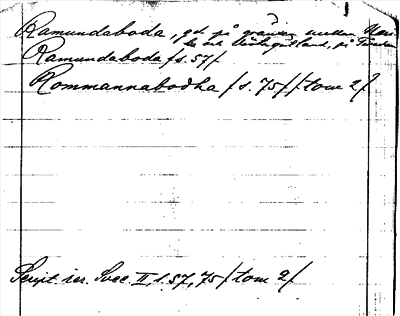 Ramundaboda, gd på gränsen mellan Neri-
ke och Västergötland, på Tiveden
Ramundaboda / s. 57 /
Rommannabodha / s. 75 / / tom 2 /
Script. rer. Svec. II, s. 57, 75 / tom 2 /